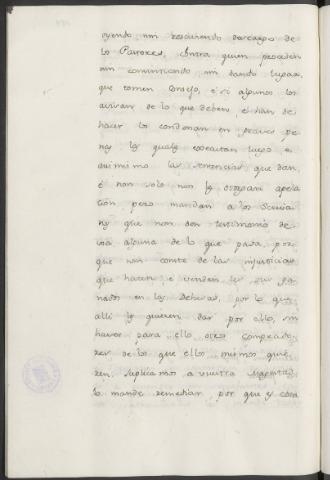 oyendo, nin rescibiendo descargo de
los Pastores, contra quien proceden
nin consintiendo, nin dando lugar,
que tomen Consejo, é si algunos los
avisan de lo que deben, é han de
hacer los condenan en graves pe
nas las quales executan luego, é
asimismo las sentencias que dan,
é non solo non les otorgan apela
ción, pero mandan a los Scriva
nos que non den testimonio de
cosa alguna de lo que pasa, por
que non conste de las injusticias
que hacen, é venden les sus ga
nados en las Dehesas, por lo que
alli les quieren dar por ello, sin
haver para ello otros comprado
res de los que ellos mismos quie
ren, suplicamos a vuestra Magestad
lo mande remediar, por que es cosa